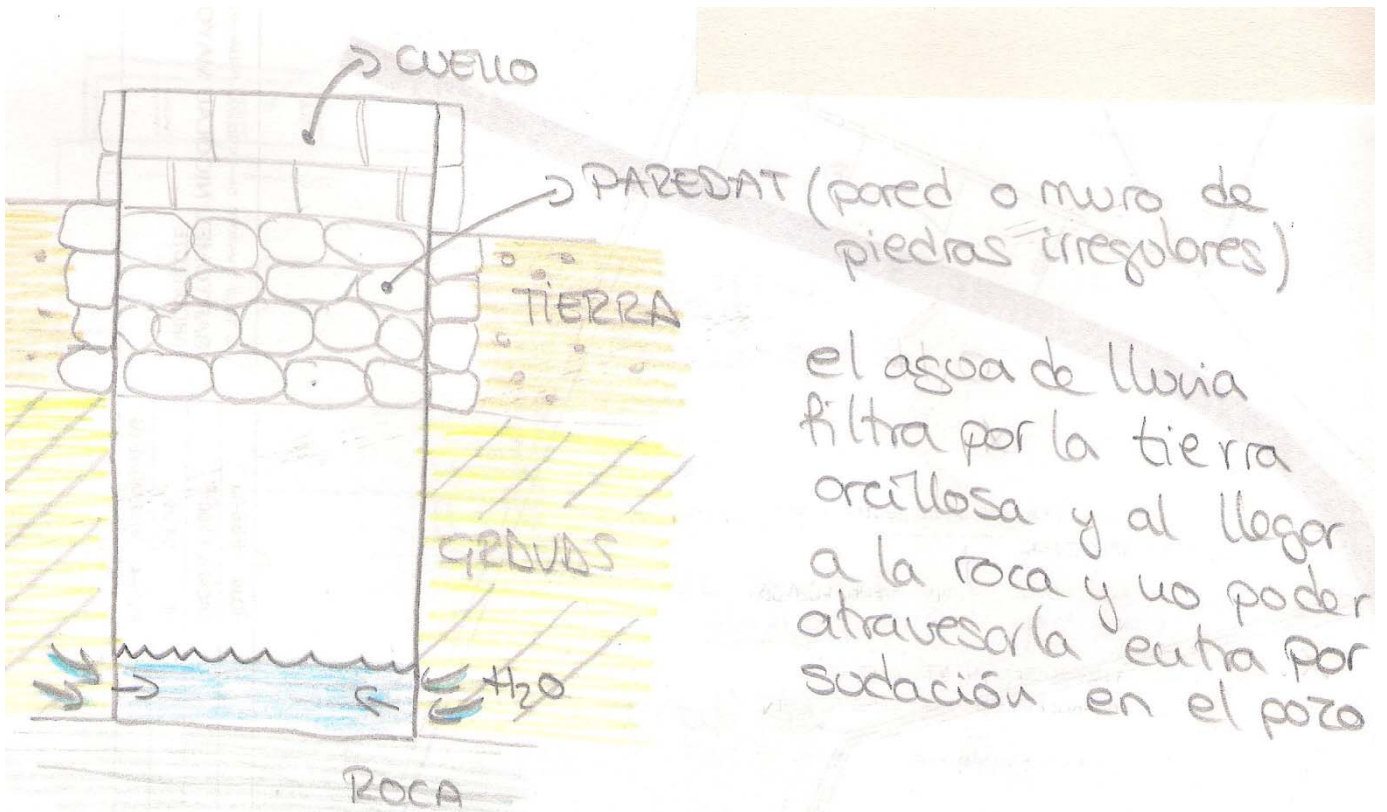 CUELLO
PAREDAT (pared o muro de
piedras irregulares)
TIERRA
el agua de lluvia
filtra por la tierra
arcillosa y al llegar
a la roca y no poder
atravesarla entra por
sudación en el pozo
GRAVAS
H₂O
ROCA